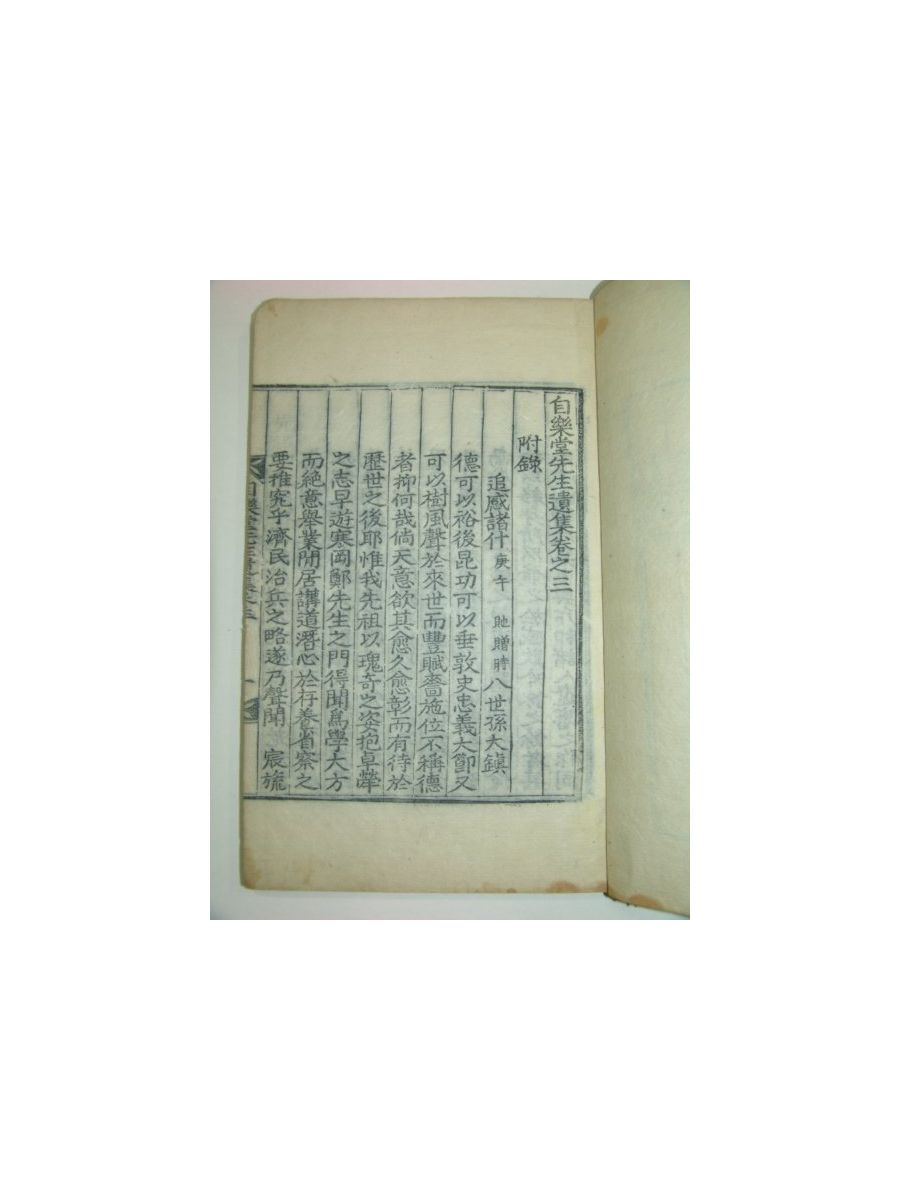 自樂堂先生遺集卷之三
附錄
追感諸什 庚午 貤贈時 八世孫大鎭
德可以裕後昆功可以垂敦史忠義大節又
可以樹風聲於來世而豐賦嗇施位不稱德
者抑何哉倘天意欲其愈久愈彰而有待於
歷世之後耶惟我先祖以瑰奇之姿抱卓犖
之志早遊寒岡鄭先生之門得聞爲學大方
而絶意擧業閒居講道潛心於存養省察之
要推究乎濟民治兵之略遂乃聲聞 宸旒